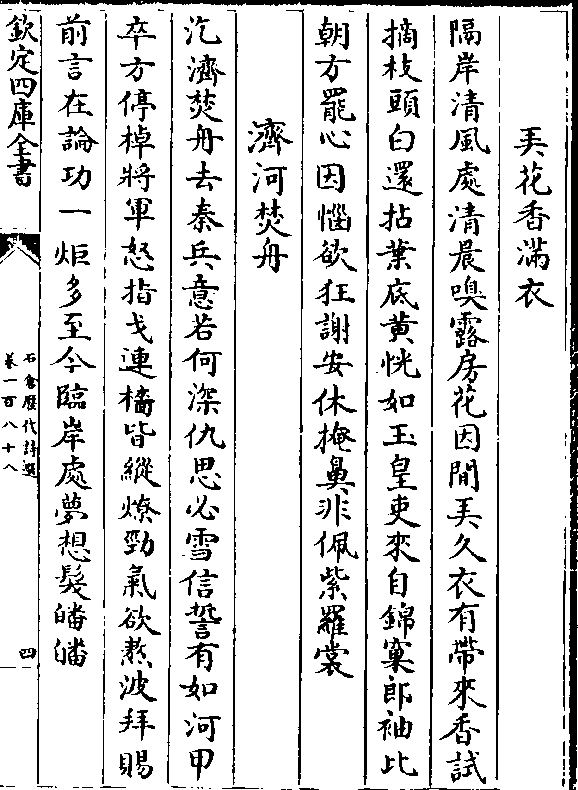 弄花香滿衣
隔岸清風處清晨嗅露房花因閒弄久衣有帶來香試
摘枝頭白還拈葉底黃恍如玉皇吏來自錦窠郎袖比
朝方罷心因惱欲狂謝安休掩鼻非佩紫羅裳
濟河焚舟
汔濟焚舟去秦兵意若何深仇思必雪信誓有如河甲
卒方停棹將軍怒指戈連檣皆縱燎勁氣欲熬波拜賜
前言在論功一炬多至今臨岸處夢想髮皤皤
欽定四庫全書
石倉歷代詩選
卷一百八十八
四